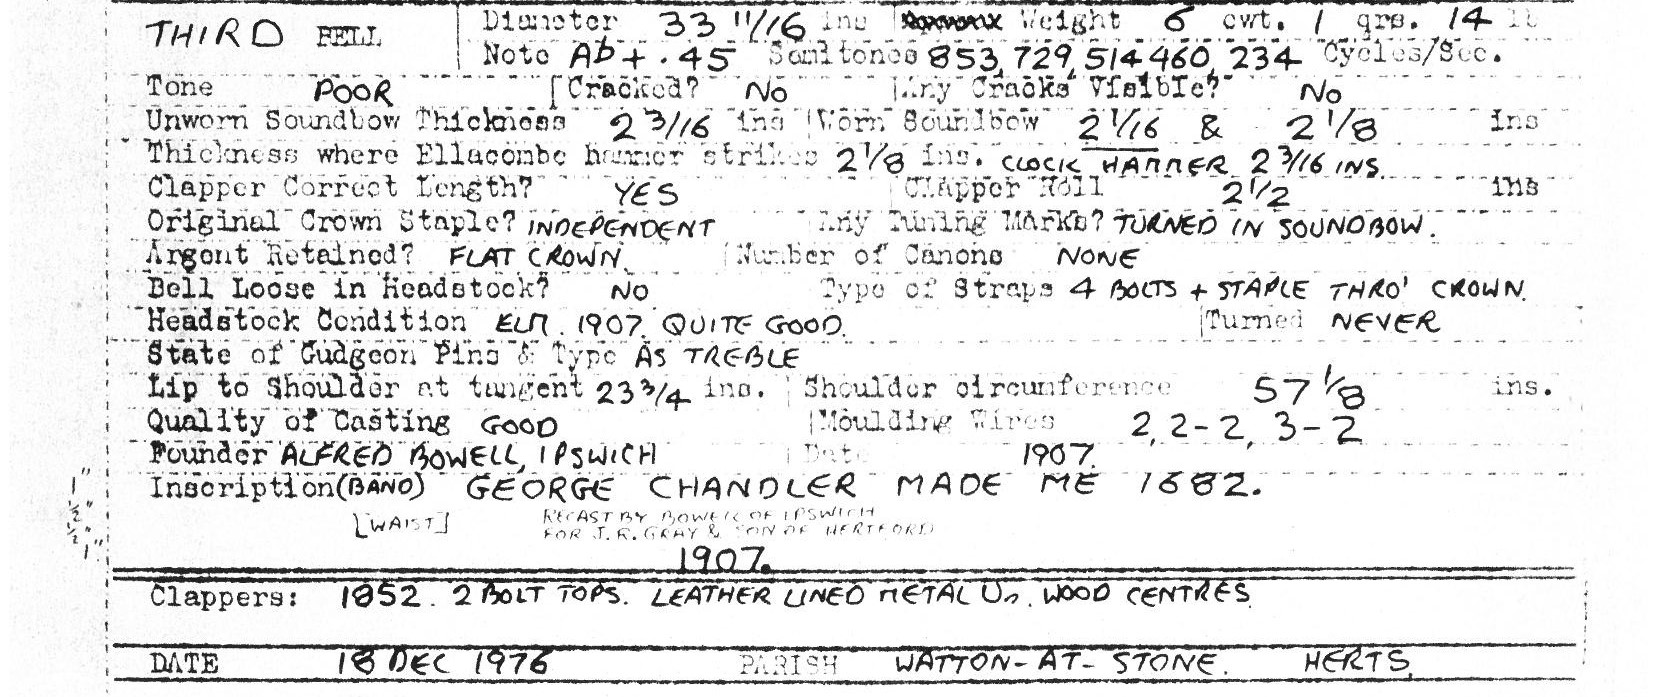 THIRD BELL Diameter 33 11/16 ins Weight 6 cwt. 1 qrs. 14 lb
Note Ab + .45 Semitones 853, 729, 514 460, 234 Cycles/Sec.
Tone POOR Cracked? NO Any Cracks Visible? NO
Unworn Soundbow Thickness 2 3/16 ins Worn Soundbow 2 1/16 & 2 1/8 ins
Thickness where Ellacombe hammer strikes 2 1/8 ins. CLOCK HAMMER 2 3/16 INS.
Clapper Correct Length? YES Clapper Roll 2 1/2 ins
Original Crown Staple? INDEPENDENT Any Tuning Marks? TURNED IN SOUNDBOW.
Argent Retained? FLAT CROWN. Number of Canons NONE
Bell Loose in Headstock? NO Type of Straps 4 BOLTS + STAPLE THRO' CROWN.
Headstock Condition ELM. 1907. QUITE GOOD. Turned NEVER
State of Gudgeon Pins & Type AS TREBLE
Lip to Shoulder at tangent 23 3/4 ins. Shoulder circumference 57 1/8 ins.
Quality of Casting GOOD Moulding Wires 2, 2-2, 3-2
Founder ALFRED BOWELL, IPSWICH Date 1907.
Inscription (BAND) GEORGE CHANDLER MADE ME 1682.
1"
1/2"
1/2"
1"
[WAIST] RECAST BY BOWELL OF IPSWICH
FOR J. R. GRAY & SON OF HERTFORD
1907.
Clappers: 1852. 2 BOLT TOPS. LEATHER LINED METAL Us. WOOD CENTRES.
DATE 18 DEC 1976 PARISH WATTON-AT-STONE. HERTS.